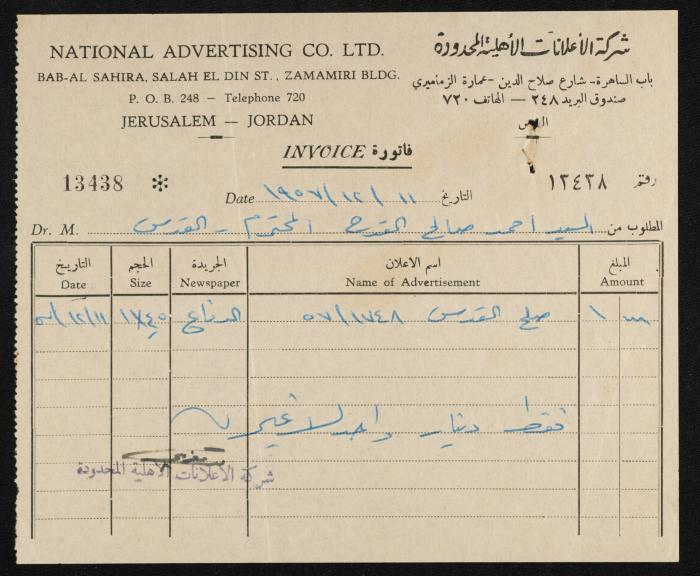 NATIONAL ADVERTISING CO. LTD.
BAB-AL SAHIRA, SALAH EL DIN ST., ZAMAMIRI BLDG.
P. O. B. 248 — Telephone 720
JERUSALEM — JORDAN
شركة الاعلانات الأهلية المحدودة
باب الساهرة - شارع صلاح الدين - عمارة الزماميري
صندوق البريد ٢٤٨ — الهاتف ٧٢٠
القدس
INVOICE فاتورة
13438 *
رقم ١٣٤٣٨
Date ١٩٥٧/١٢/١١ التاريخ
Dr. M. المطلوب من السيد احمد صالح القدح المحترم - القدس
التاريخ الحجم الجريدة اسم الاعلان المبلغ
Date Size Newspaper Name of Advertisement Amount
١٢/١١ الدفاع صلح القدس ٥٧/١٧٤٨ ١
فقط دينار واحد لا غير
شركة الاعلانات الأهلية المحدودة